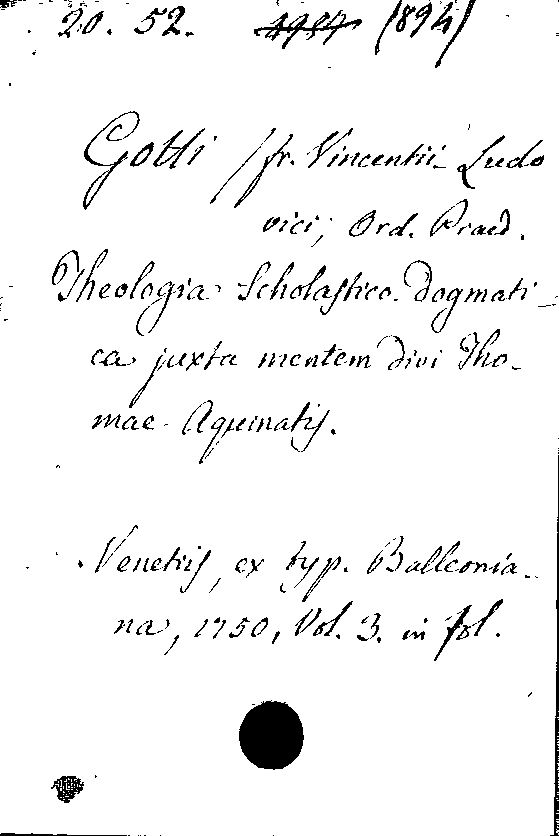 20. 52. 4984 (894)
Gotti /fr. Vincentii Ludo
vici, Ord. Praed.
Theologia Scholastico-dogmati-
ca juxta mentem divi Tho-
mae Aquinatis.
Venetiis, ex typ. Ballconia-
na, 1750, Vol. 3. in fol.